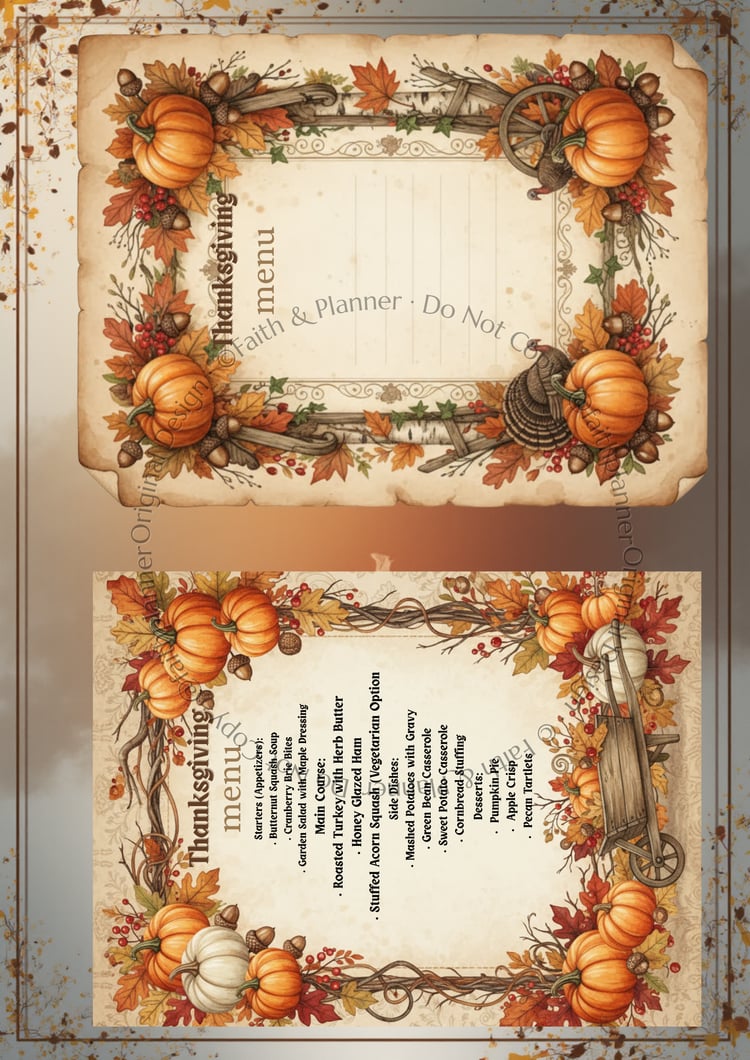 Thanksgiving
menu
© Faith & Planner · Do Not Co
Thanksgiving
menu
Starters (Appetizers):
· Butternut Squash Soup
· Cranberry Brie Bites
· Garden Salad with Maple Dressing
Main Course:
· Roasted Turkey with Herb Butter
· Honey Glazed Ham
· Stuffed Acorn Squash (Vegetarian Option
Side Dishes:
· Mashed Potatoes with Gravy
· Green Bean Casserole
· Sweet Potato Casserole
· Cornbread Stuffing
Desserts:
· Pumpkin Pie
· Apple Crisp
· Pecan Tartlets